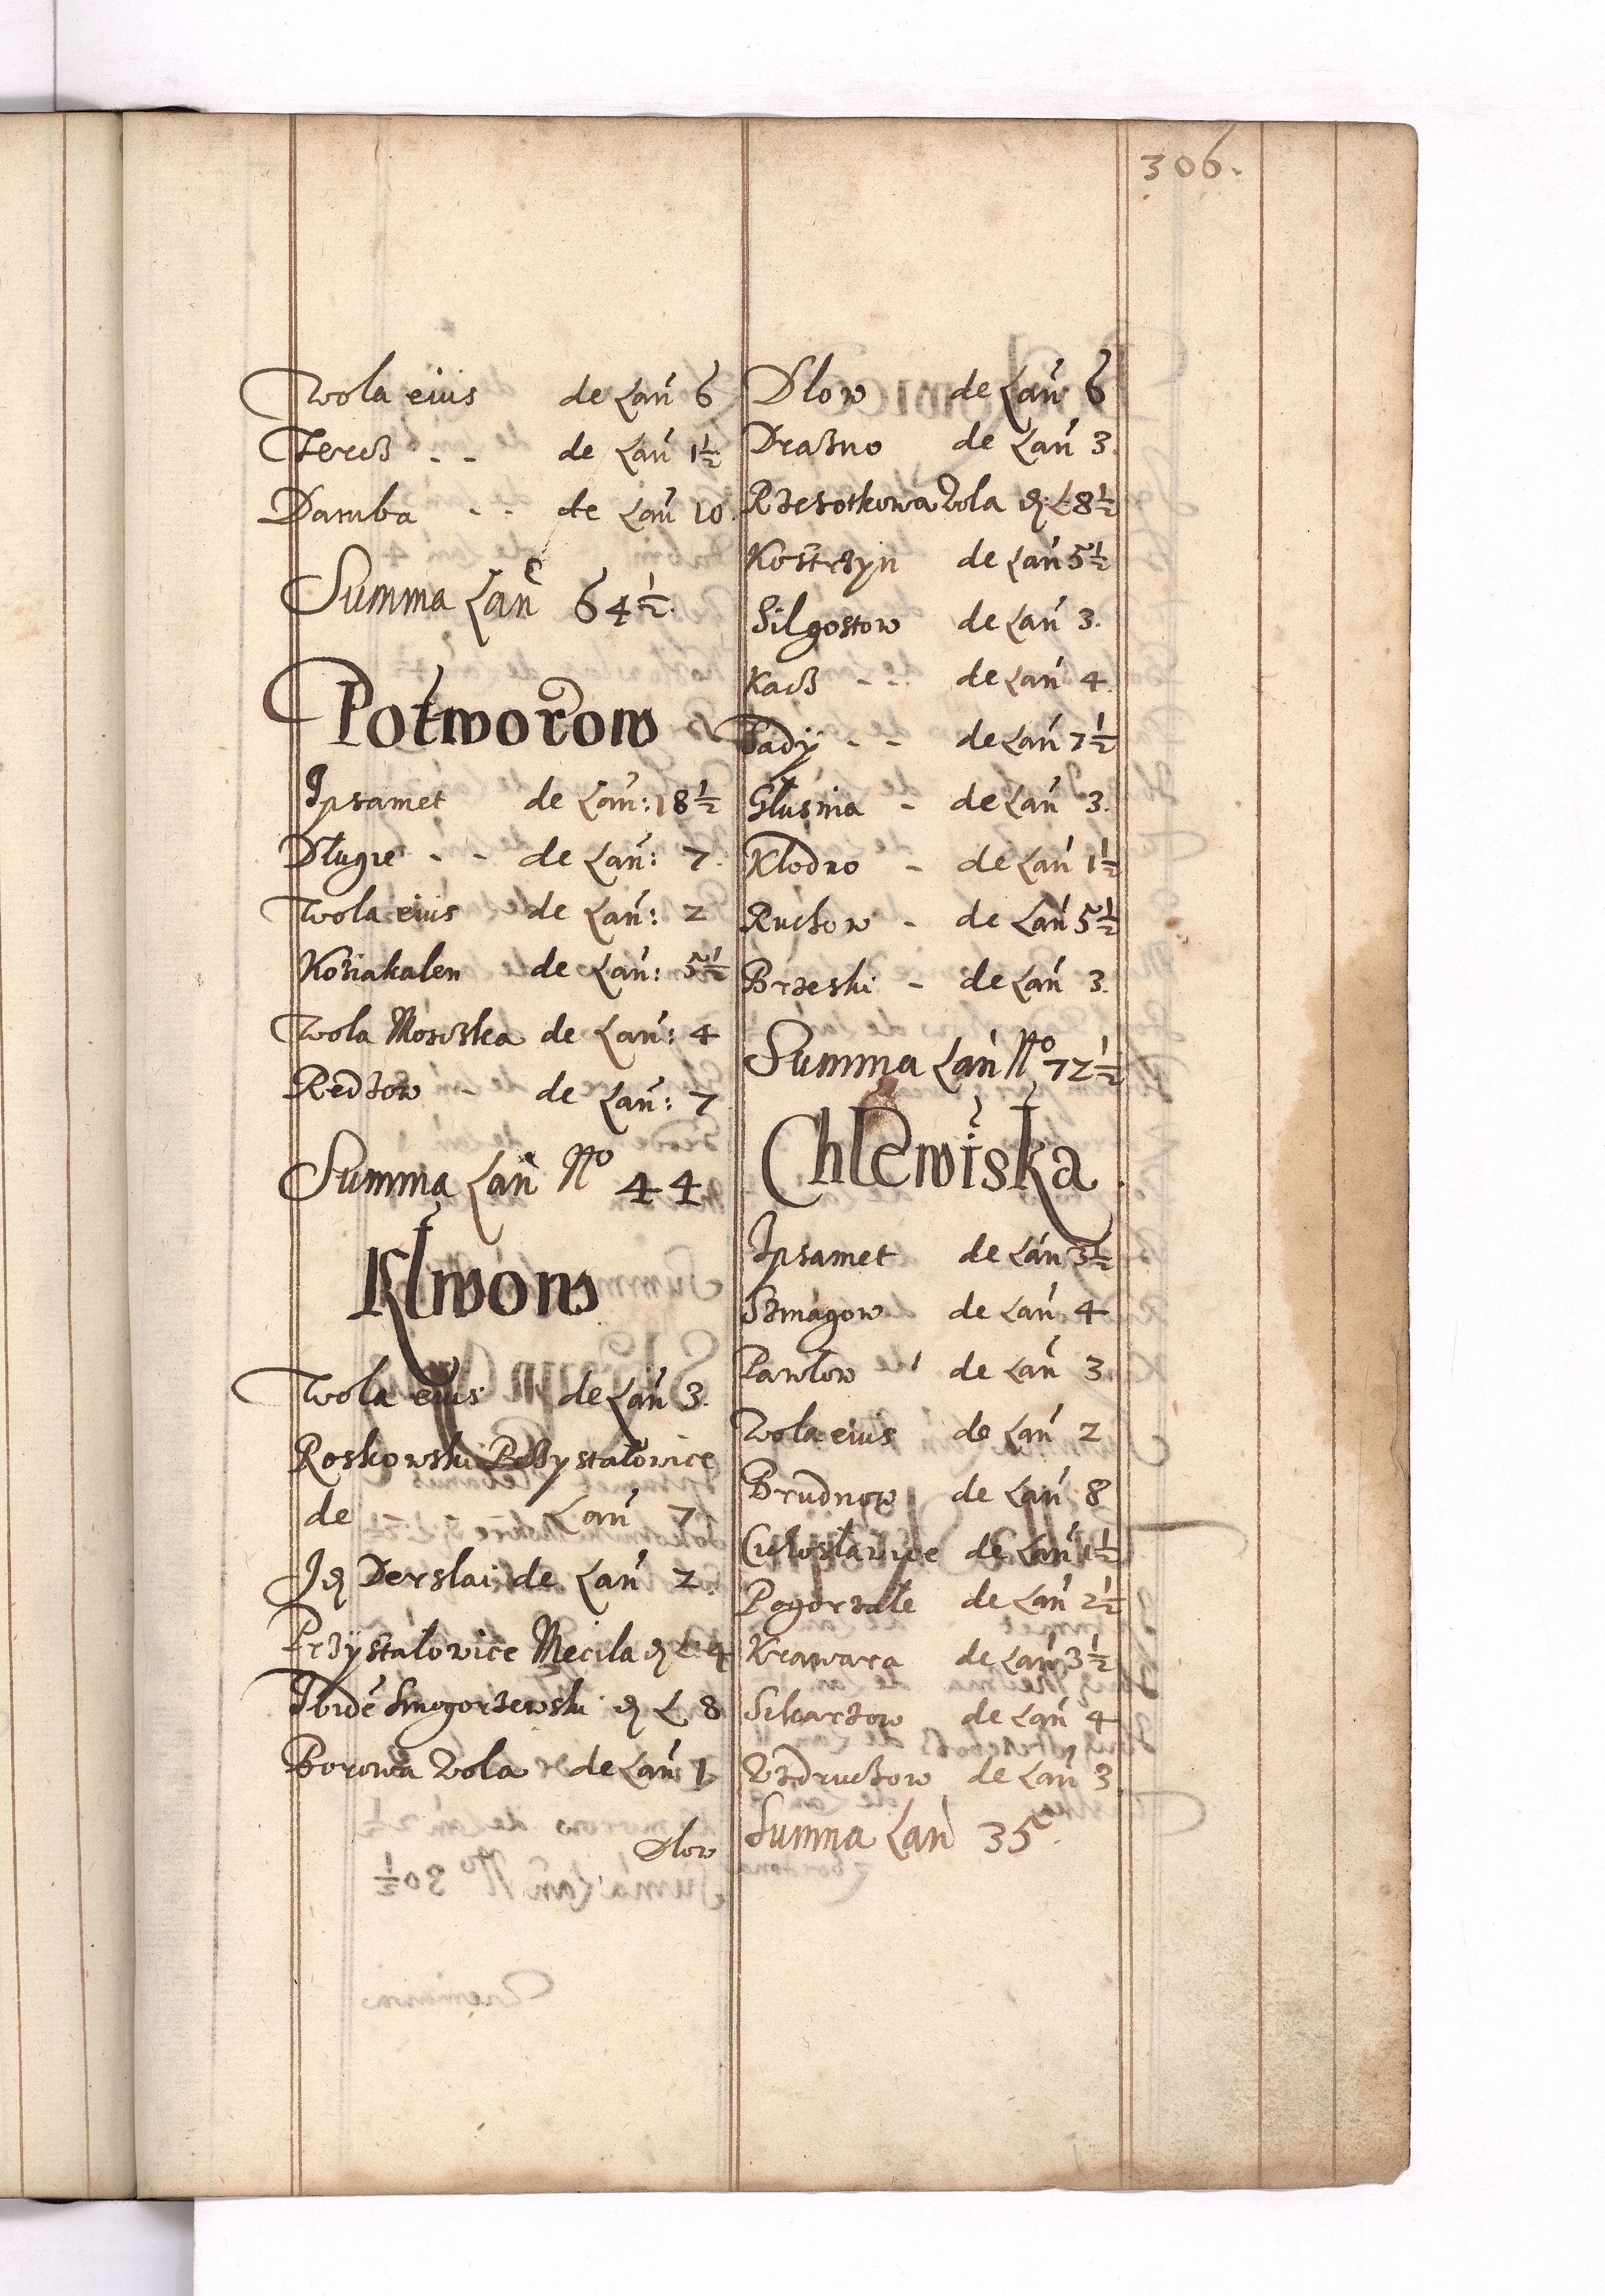 306.
Wola eius de Lań 6
Jercß - - de Lań 1½
Damba - - de Lań 10.
Summa Lań 64½.
Potworow
Ipsamet de Lań: 18½
Długie - - de Lań: 7.
Wola eius de Lań: 2
Kożiakalen de Lań: 5½
Wola Mosßka de Lań: 4
Redzow - de Lań: 7
Summa Lań No 44
Klwow
Wola eius de Lań 3.
Roskowski Przystałowice
de - Lań 7
Ide Derslai de Lań 2.
Przÿstałowice Mecila de L 4
Ibidē Smogorzewski de L 8
Borowa Wola de Lań 1
Dlow
Dlow de Lań 6
Draßno de Lań 3.
Rzesotkowa Wola de L 8½
Kostrzyn de Lań 5½
Silgostow de Lań 3.
Kacß - - de Lań 4.
Sady - - de Lań 7½
Głusnia - de Lań 3.
Klodno - de Lań 1½
Ruchow - de Lań 5½
Brzeski - de Lań 3.
Summa Lań No 72½
Chlewiska
Ipsamet de Lań 3½
Szmagow de Lań 4
Pawlow de Lań 3.
Wola eius de Lań 2
Brudnow de Lań 8
Ciechostawice de Lań 1½
Pogorzałe de Lań 2½
Krawara de Lań 3½
Sikarzow de Lań 4
Wzdruchow de Lań 3.
Summa Lań 35.